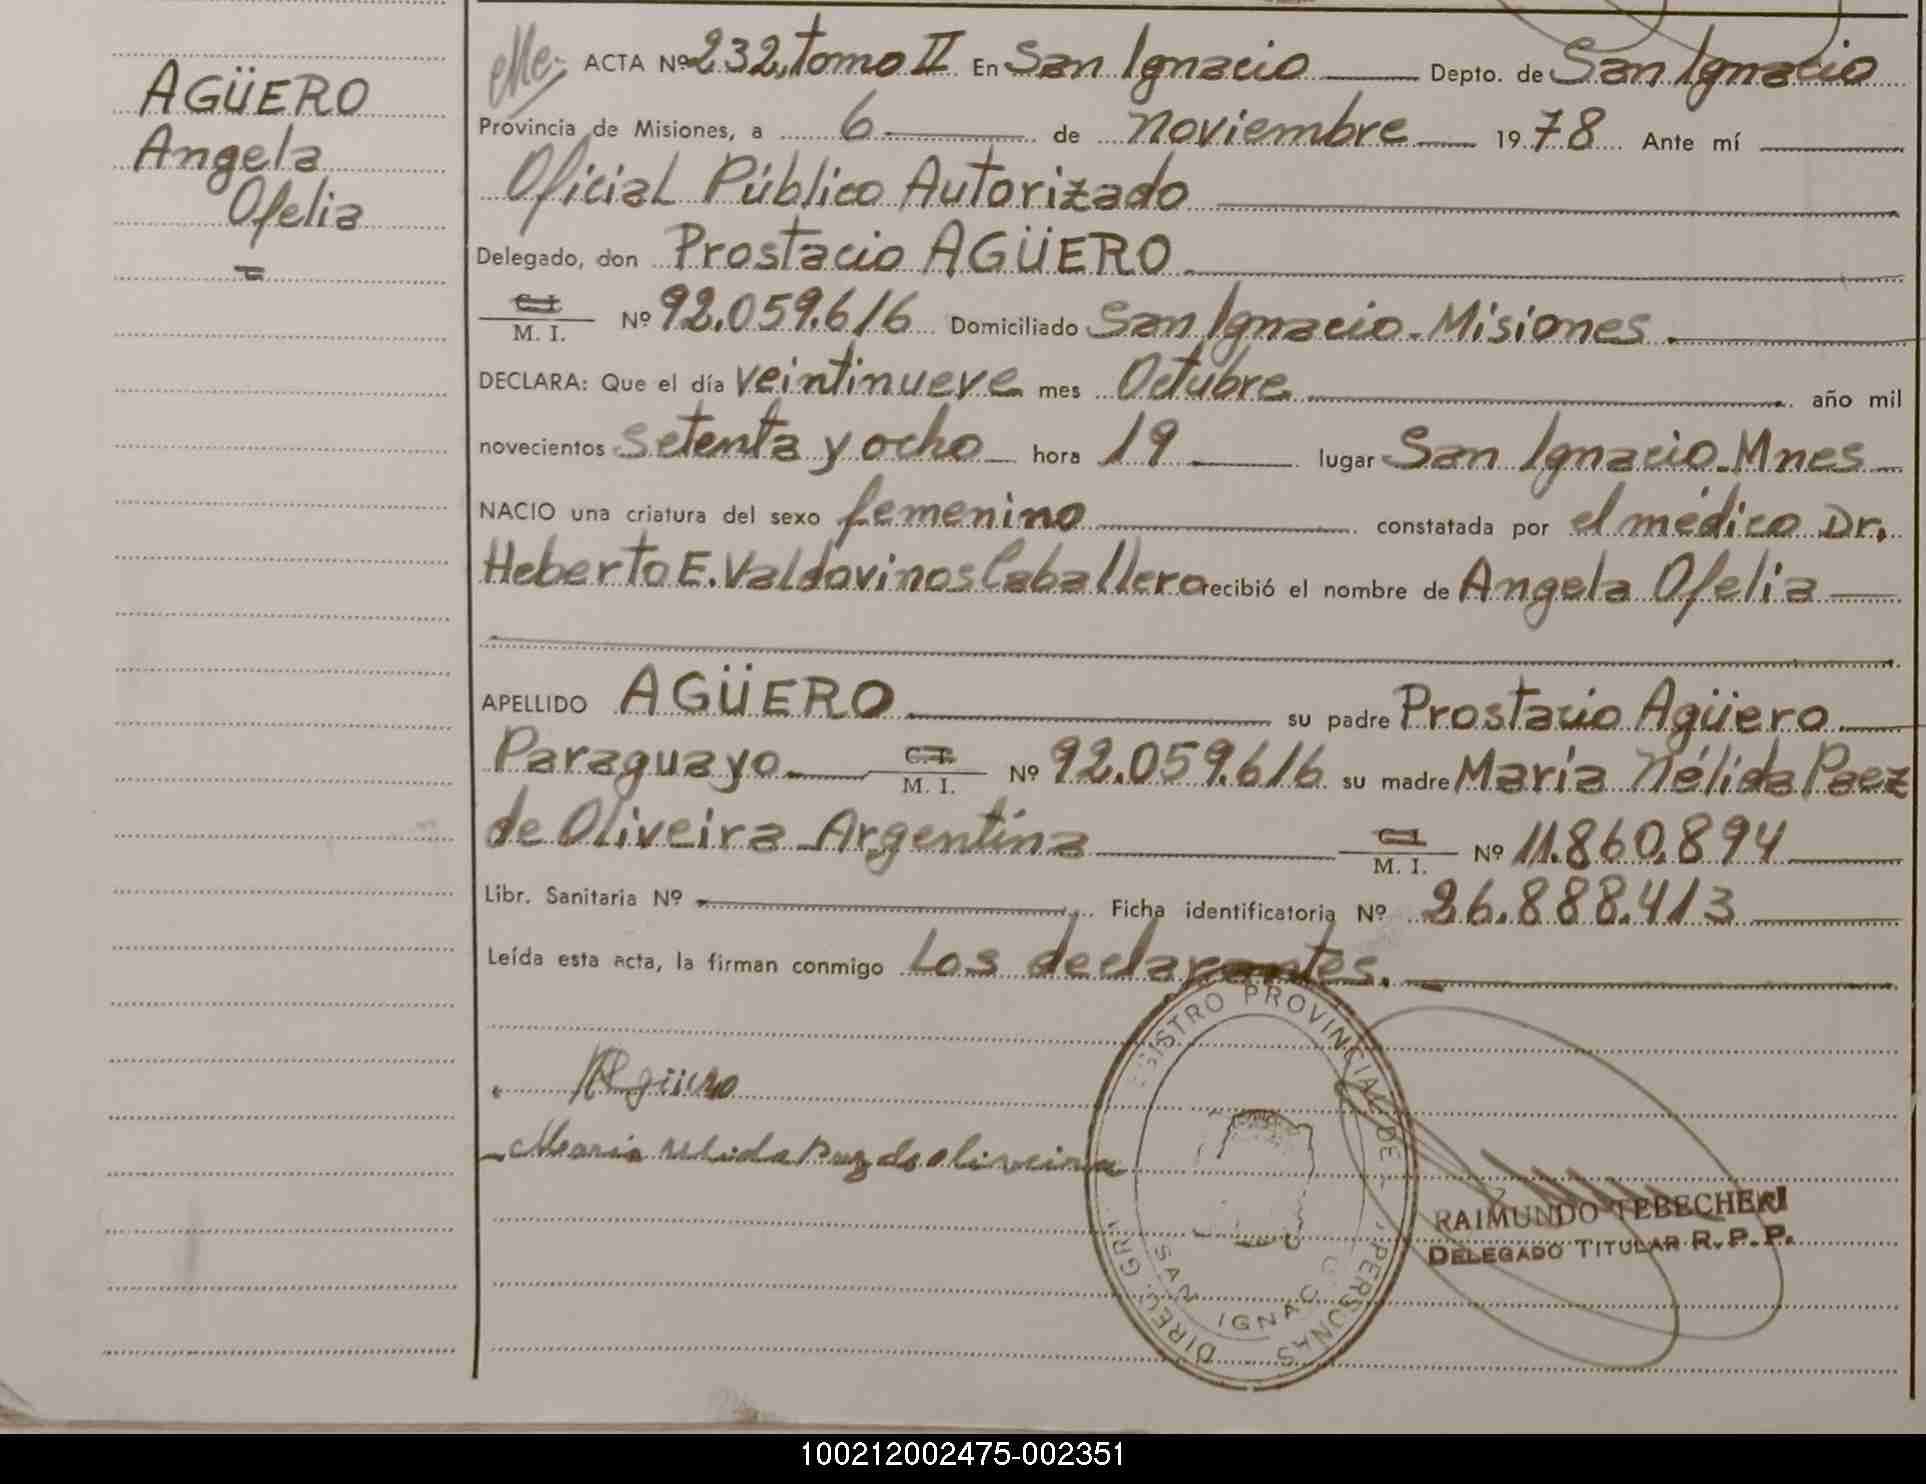 AGÜERO
Angela
Ofelia
ACTA Nº 232, Tomo II En San Ignacio Depto. de San Ignacio
Provincia de Misiones, a 6 de noviembre 1978 Ante mí
Oficial Público Autorizado
Delegado, don Prostacio AGÜERO
C. I.
M. I. Nº 92.059.616 Domiciliado San Ignacio - Misiones.
DECLARA: Que el día veintinueve mes Octubre año mil
novecientos setenta y ocho hora 19 lugar San Ignacio - Mnes
NACIO una criatura del sexo femenino constatada por el médico Dr.
Heberto E. Valdovinos Caballero recibió el nombre de Angela Ofelia
APELLIDO AGÜERO su padre Prostacio Agüero
Paraguayo C. I. M. I. Nº 92.059.616 su madre María Nélida Paez
de Oliveira Argentina C. I. M. I. Nº 11.860.894
Libr. Sanitaria Nº Ficha identificatoria Nº 26.888.413
Leída esta acta, la firman conmigo Los declarantes.
Agüero
María Nélida Paez de Oliveira
REGISTRO PROVINCIAL DE PERSONAS
DIREC. GRL.
SAN IGNACIO
RAIMUNDO TEBECHERI
DELEGADO TITULAR R. P. P.
100212002475-002351